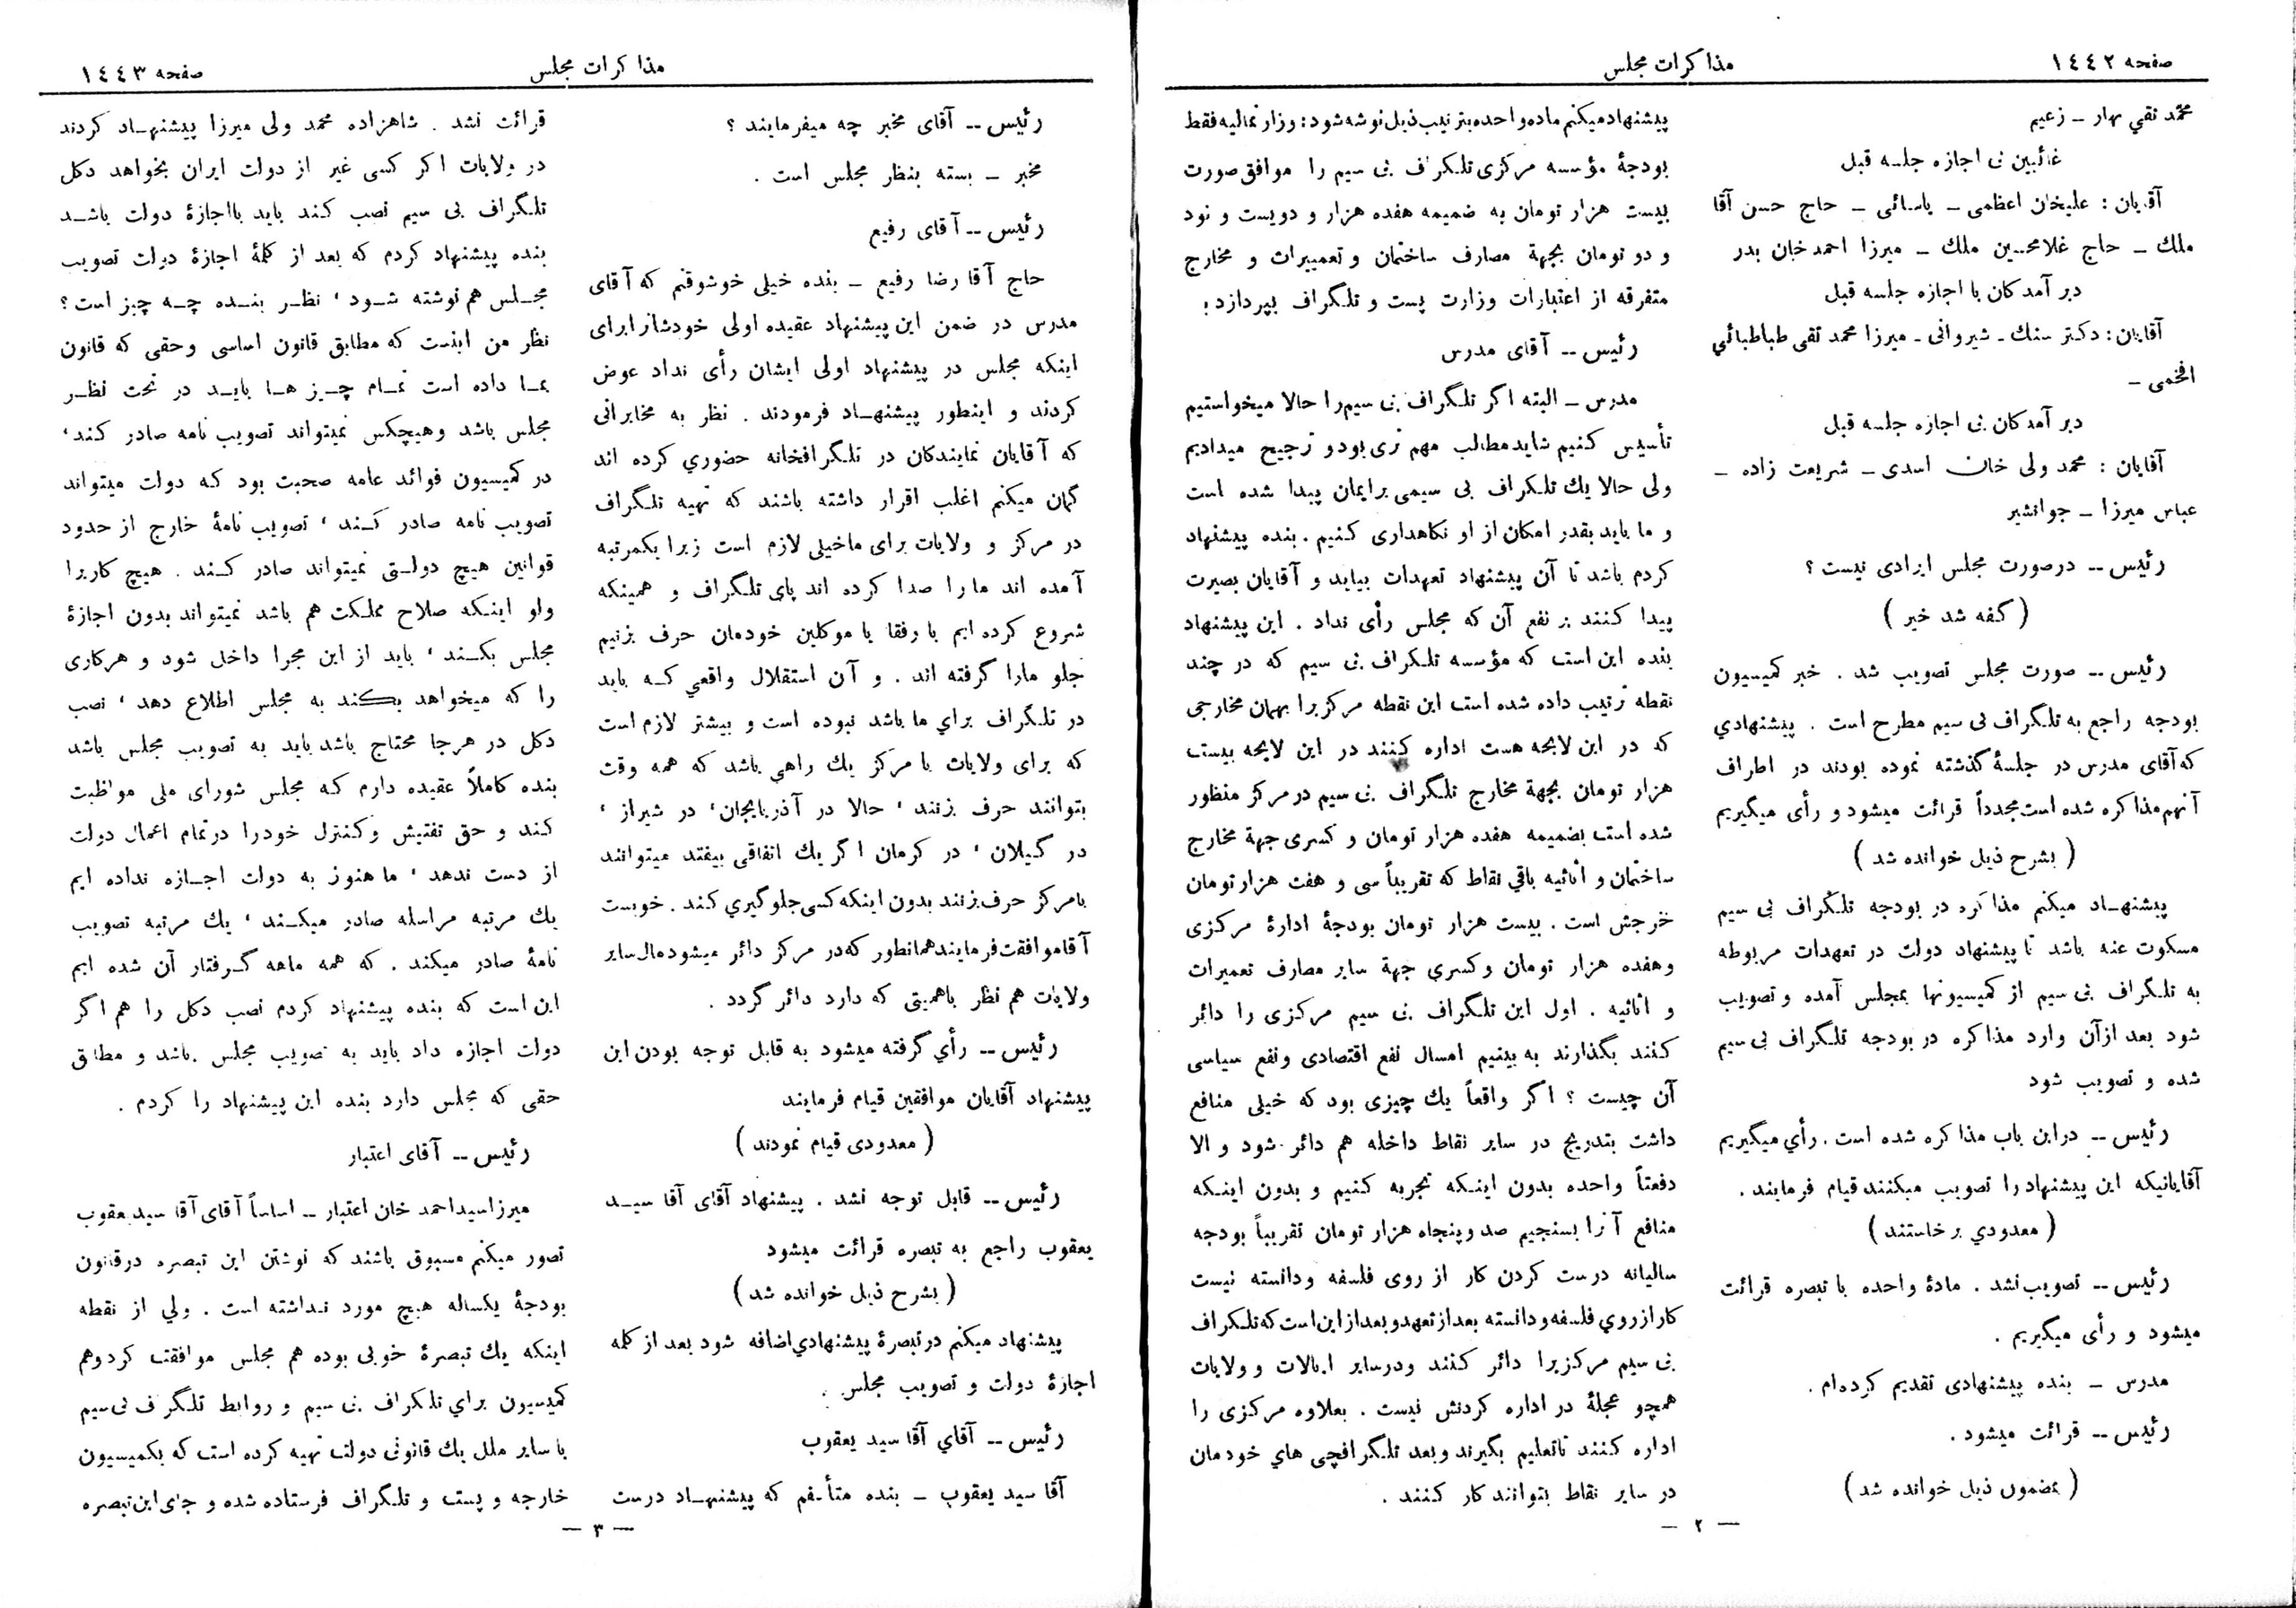 صفحه ١٤٤٢
مذاکرات مجلس
محمد تقی بهار ــ زعیم
غائبین بی اجازه جلسه قبل
آقایان : علیخان اعظمی ــ یاسائی ــ حاج حسن آقا
ملك ــ حاج غلامحسین ملك ــ میرزا احمد خان بدر
دیر آمدگان با اجازه جلسه قبل
آقایان: دکتر سنك ــ شیروانی ــ میرزا محمد تقی طباطبائی
افخمی ــ
دیر آمدگان بی اجازه جلسه قبل
آقایان : محمد ولی خان اسدی ــ شریعت زاده ــ
عباس میرزا ــ جوانشیر
رئیس ــ درصورت مجلس ایرادی نیست ؟
( گفته شد خیر )
رئیس ــ صورت مجلس تصویب شد . خبر کمیسیون
بودجه راجع به تلگراف بی سیم مطرح است . پیشنهادي
که آقای مدرس در جلسهٔ گذشته نموده بودند در اطراف
آنهم مذاکره شده است مجدداً قرائت میشود و رأی میگیریم
( بشرح ذیل خوانده شد )
پیشنهاد میکنم مذاکره در بودجه تلگراف بی سیم
مسکوت عنه باشد تا پیشنهاد دولت در تعهدات مربوطه
به تلگراف بی سیم از کمیسیونها بمجلس آمده و تصویب
شود بعد ازآن وارد مذاکره در بودجه تلگراف بی سیم
شده و تصویب شود
رئیس ــ دراین باب مذاکره شده است . رأي میگیریم
آقایانیکه این پیشنهاد را تصویب میکنند قیام فرمایند .
( معدودي برخاستند )
رئیس ــ تصویب نشد . مادهٔ واحده با تبصره قرائت
میشود و رأی میگیریم .
مدرس ــ بنده پیشنهادی تقدیم کرده‌ام .
رئیس ــ قرائت میشود .
( بمضمون ذیل خوانده شد )
پیشنهاد میکنم ماده واحده بترتیب ذیل نوشته شود: وزارتمالیه فقط
بودجهٔ مؤسسه مرکزی تلگراف بی سیم را موافق صورت
بیست هزار تومان به ضمیمه هفده هزار و دویست و نود
و دو تومان بجهة مصارف ساختمان و تعمیرات و مخارج
متفرقه از اعتبارات وزارت پست و تلگراف بپردازد؛
رئیس ــ آقای مدرس
مدرس ــ البته اگر تلگراف بی سیم را حالا میخواستیم
تأسیس کنیم شاید مطالب مهم تری بود و ترجیح میدادیم
ولی حالا یك تلگراف بی سیمی برایمان پیدا شده است
و ما باید بقدر امکان از او نگاهداری کنیم . بنده پیشنهاد
کردم باشد تا آن پیشنهاد تعهدات بیاید و آقایان بصیرت
پیدا کنند بر نفع آن که مجلس رأی نداد . این پیشنهاد
بنده این است که مؤسسه تلگراف بی سیم که در چند
نقطه ترتیب داده شده است این نقطه مرکزیرا بهمان مخارجی
که در این لایحه هست اداره کنند در این لایحه بیست
هزار تومان بجهة مخارج تلگراف بی سیم در مرکز منظور
شده است بضمیمه هفده هزار تومان و کسری جهة مخارج
ساختمان و اثاثیه باقی نقاط که تقریباً سی و هفت هزار تومان
خرجش است . بیست هزار تومان بودجهٔ ادارهٔ مرکزی
وهفده هزار تومان وکسری جهة سایر مصارف تعمیرات
و اثاثیه . اول این تلگراف بی سیم مرکزی را دائر
کنند بگذارند به بینیم امسال نفع اقتصادی ونفع سیاسی
آن چیست ؟ اگر واقعاً یك چیزی بود که خیلی منافع
داشت بتدریج در سایر نقاط داخله هم دائر شود و الا
دفعتاً واحده بدون اینکه تجربه کنیم و بدون اینکه
منافع آنرا بسنجیم صد و پنجاه هزار تومان تقریباً بودجه
سالیانه درست کردن کار از روی فلسفه ودانسته نیست
کار از روي فلسفه و دانسته بعد از تعهد و بعد از این است که تلگراف
بی سیم مرکزیرا دائر کنند ودرسایر ایالات و ولایات
همچو عجلهٔ در اداره کردنش نیست . بعلاوه مرکزی را
اداره کنند تاتعلیم بگیرند وبعد تلگرافچی های خودمان
در سایر نقاط بتوانند کار کنند .
— ٢ —
مذاکرات مجلس
صفحه ١٤٤٣
رئیس ــ آقای مخبر چه میفرمایند ؟
مخبر ــ بسته بنظر مجلس است .
رئیس ــ آقای رفیع
حاج آقا رضا رفیع ــ بنده خیلی خوشوقتم که آقای
مدرس در ضمن این پیشنهاد عقیده اولی خودشانرا برای
اینکه مجلس در پیشنهاد اولی ایشان رأی نداد عوض
کردند و اینطور پیشنهاد فرمودند . نظر به مخابراتی
که آقایان نمایندگان در تلگرافخانه حضوري کرده اند
گمان میکنم اغلب اقرار داشته باشند که تهیه تلگراف
در مرکز و ولایات برای ماخیلی لازم است زیرا یکمرتبه
آمده اند ما را صدا کرده اند پای تلگراف و همینکه
شروع کرده ایم با رفقا یا موکلین خودمان حرف بزنیم
جلو مارا گرفته اند . و آن استقلال واقعي که باید
در تلگراف براي ما باشد نبوده است و بیشتر لازم است
که برای ولایات با مرکز یك راهي باشد که همه وقت
بتوانند حرف بزنند ، حالا در آذربایجان، در شیراز ،
در گیلان ، در کرمان اگر یك اتفاقی بیفتد میتوانند
بامرکز حرف بزنند بدون اینکه کسی جلوگیري کند . خوبست
آقا موافقت فرمایند همانطور که در مرکز دائر میشود مال سایر
ولایات هم نظر باهمیتی که دارد دائر گردد .
رئیس ــ رأي گرفته میشود به قابل توجه بودن این
پیشنهاد آقایان موافقین قیام فرمایند
( معدودی قیام نمودند )
رئیس ــ قابل توجه نشد . پیشنهاد آقای آقا سید
یعقوب راجع به تبصره قرائت میشود
( بشرح ذیل خوانده شد )
پیشنهاد میکنم در تبصرهٔ پیشنهادي اضافه شود بعد از کلمه
اجازهٔ دولت و تصویب مجلس .
رئیس ــ آقاي آقا سید یعقوب
آقا سید یعقوب ــ بنده متأسفم که پیشنهاد درست
قرائت نشد . شاهزاده محمد ولی میرزا پیشنهاد کردند
در ولایات اگر کسی غیر از دولت ایران بخواهد دکل
تلگراف بی سیم نصب کند باید بااجازهٔ دولت باشد
بنده پیشنهاد کردم که بعد از کلمهٔ اجازهٔ دولت تصویب
مجلس هم نوشته شود ، نظر بنده چه چیز است ؟
نظر من اینست که مطابق قانون اساسی وحقی که قانون
بما داده است تمام چیز ها باید در تحت نظر
مجلس باشد وهیچکس نمیتواند تصویب نامه صادر کند ،
در کمیسیون فوائد عامه صحبت بود که دولت میتواند
تصویب نامه صادر کند ، تصویب نامهٔ خارج از حدود
قوانین هیچ دولتی نمیتواند صادر کند . هیچ کاریرا
ولو اینکه صلاح مملکت هم باشد نمیتواند بدون اجازهٔ
مجلس بکند ، باید از این مجرا داخل شود و هرکاری
را که میخواهد بکند به مجلس اطلاع دهد ، نصب
دکل در هرجا محتاج باشد باید به تصویب مجلس باشد
بنده کاملاً عقیده دارم که مجلس شورای ملی مواظبت
کند و حق تفتیش وکنترل خودرا درتمام اعمال دولت
از دست ندهد ، ما هنوز به دولت اجازه نداده ایم
یك مرتبه مراسله صادر میکند ، یك مرتبه تصویب
نامهٔ صادر میکند . که همه ماهه گرفتار آن شده ایم
این است که بنده پیشنهاد کردم نصب دکل را هم اگر
دولت اجازه داد باید به تصویب مجلس باشد و مطابق
حقی که مجلس دارد بنده این پیشنهاد را کردم .
رئیس ــ آقای اعتبار
میرزاسیداحمد خان اعتبار ــ اساساً آقای آقا سید یعقوب
تصور میکنم مسبوق باشند که نوشتن این تبصره درقانون
بودجهٔ یکساله هیچ مورد نداشته است . ولي از نقطه
اینکه یك تبصرهٔ خوبی بوده هم مجلس موافقت کرد وهم
کمیسیون براي تلگراف بی سیم و روابط تلگراف بی سیم
با سایر ملل یك قانونی دولت تهیه کرده است که بکمیسیون
خارجه و پست و تلگراف فرستاده شده و جای این تبصره
— ٣ —